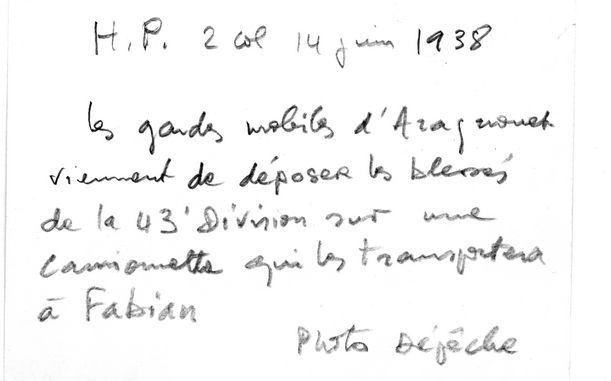 H.P. 2 col 14 juin 1938
les gardes mobiles d'Aragnouet
viennent de déposer les blessés
de la 43e Division sur une
camionnette qui les transportera
à Fabian
Photo Dépêche